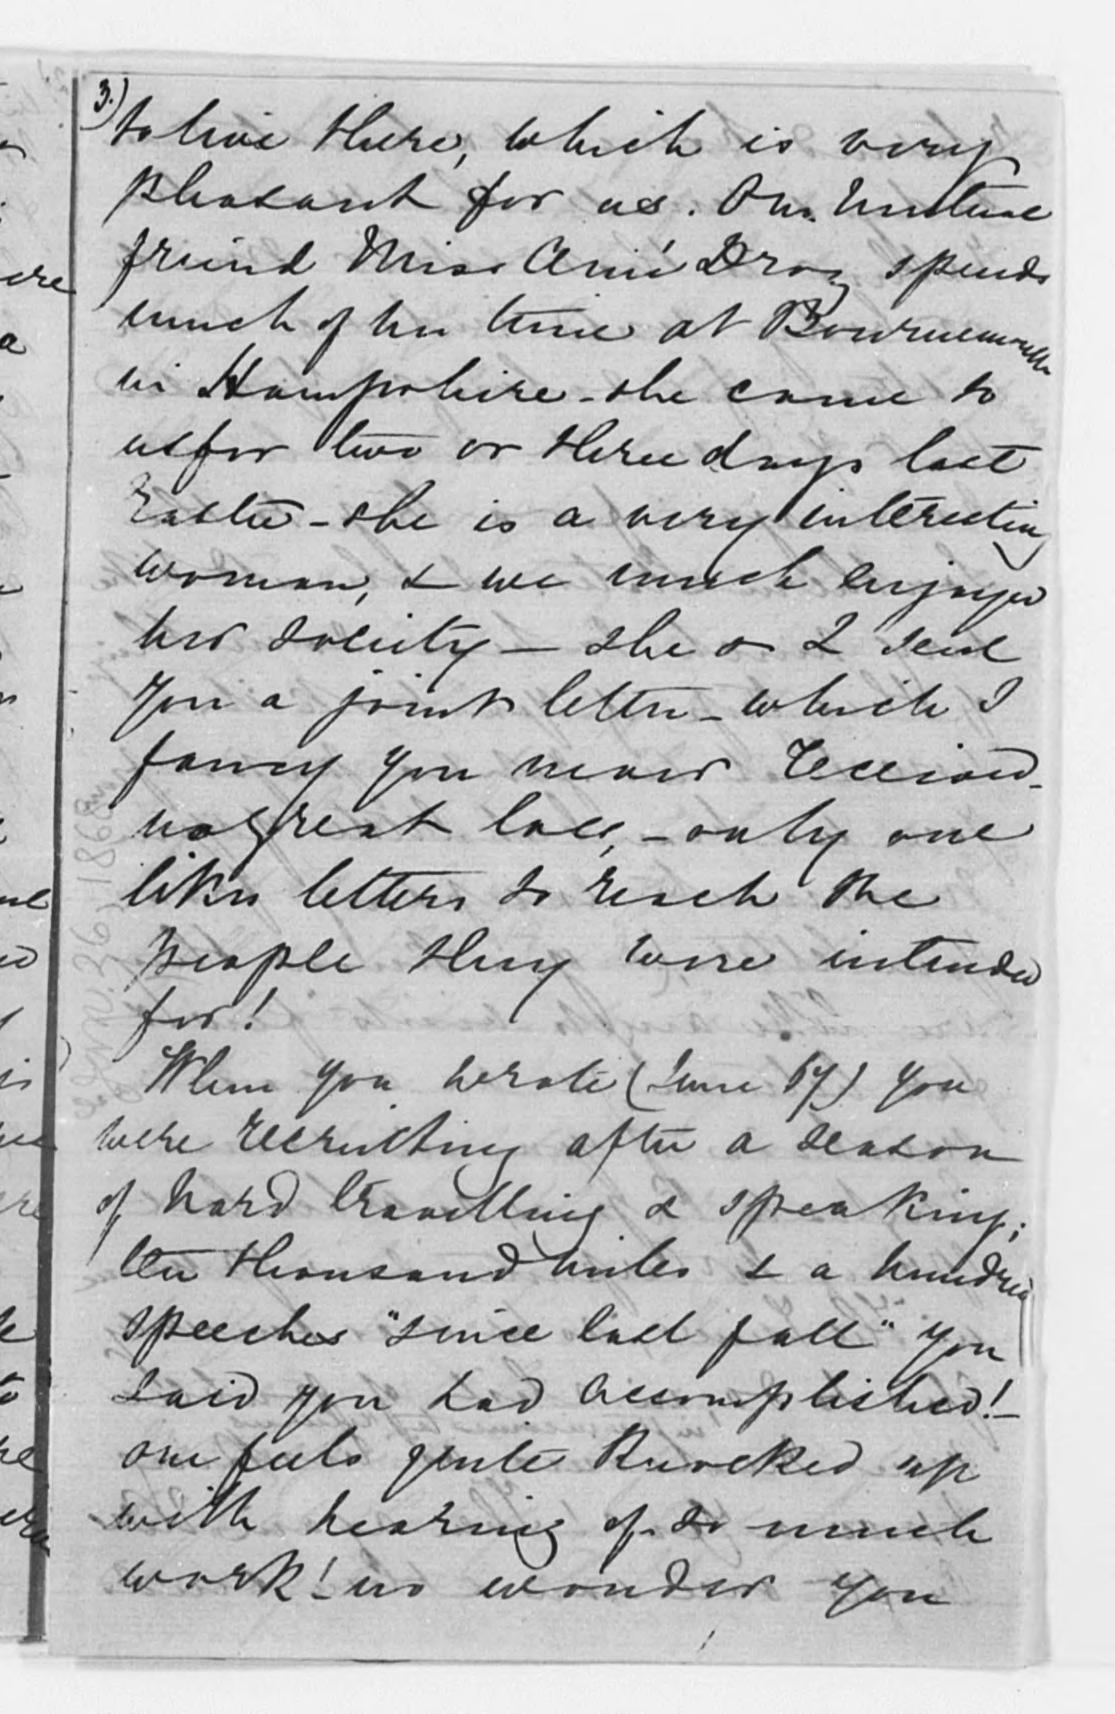 3.)
to live there, which is very
pleasant for us. Our mutual
friend Miss Aimé Droz spends
much of her time at Bournemouth
in Hampshire - she came to
us for two or three days last
Easter - she is a very interesting
woman, & we much enjoyed
her society - she & I sent
you a joint letter - which I
fancy you never received -
no great loss, - only one
likes letters to reach the
people they were intended
for!
When you wrote (June 67) you
were recruiting after a season
of hard travelling & speaking;
ten thousand miles & a hundred
speeches "since last fall" you
said you had accomplished! -
one feels quite knocked up
with hearing of so much
work! no wonder you